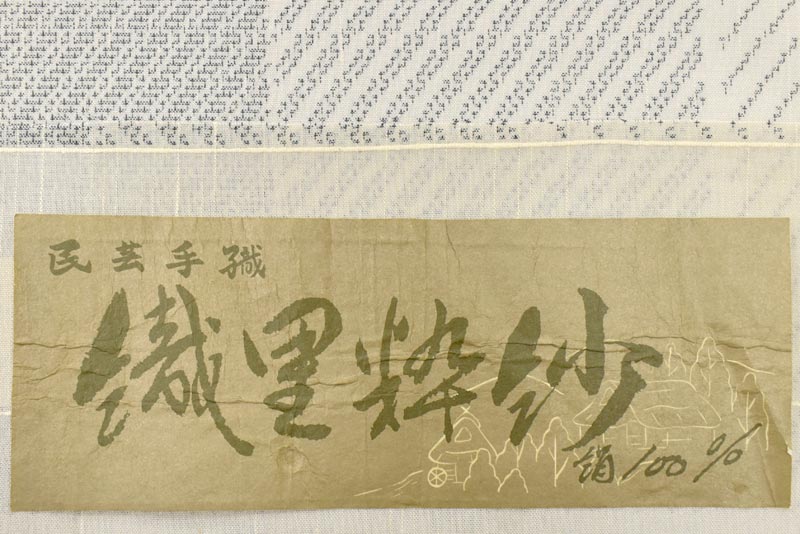 民芸手織
織里粋紗
絹100%